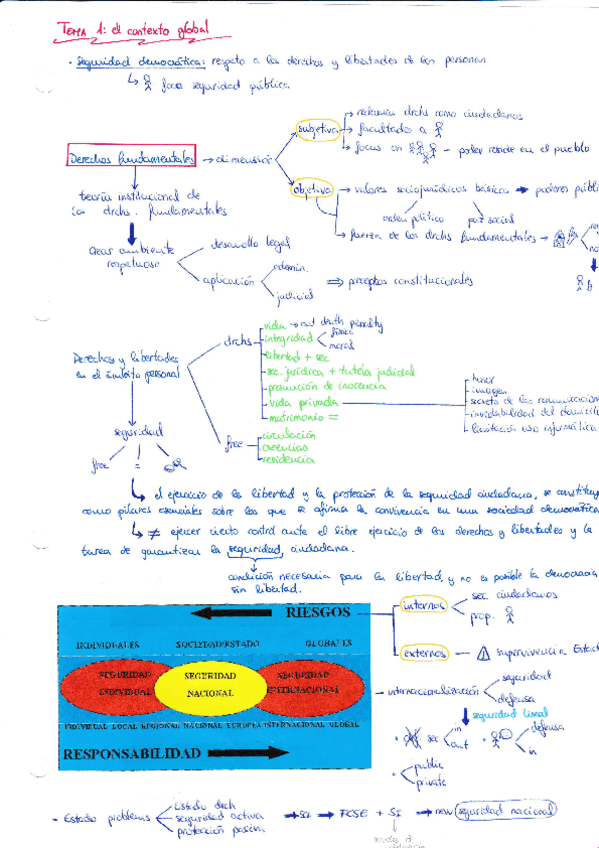 Tema 1: el contexto global
• Seguridad democrática: respeto a los derechos y libertades de las personas
foco seguridad pública
Derechos fundamentales → dimensión
subjetiva
relevancia drchs como ciudadanos
facultades a
focus on - poder reside en el pueblo
objetiva
valores sociojurídicos básicos → poderes públi
orden político
paz social
fuerza de los drchs fundamentales →
teoría institucional de
los drchs. fundamentales
crear ambiente
respetuoso
desarrollo legal
aplicación
admin.
judicial
⇒ preceptos constitucionales
Derechos y libertades
en el ámbito personal
drchs
vida → not death penalty
integridad
física
moral
libertad + sec
sec. jurídica + tutela judicial
presunción de inocencia
vida privada
honor
imagen
secreto de las comunicacion
inviolabilidad del domicili
limitación uso informática
matrimonio =
free
circulación
creencias
residencia
seguridad
free
=
↳ el ejercicio de la libertad y la protección de la seguridad ciudadana, se constituye
como pilares esenciales sobre los que se afirma la convivencia en una sociedad democrática
↳ ≠ ejercer cierto control ante el libre ejercicio de los derechos y libertades y la
tarea de garantizar la seguridad ciudadana.
condición necesaria para la libertad, y no es posible la democracia
sin libertad.
RIESGOS
INDIVIDUALES SOCIEDAD/ESTADO GLOBALES
SEGURIDAD INDIVIDUAL
SEGURIDAD NACIONAL
SEGURIDAD INTERNACIONAL
INDIVIDUAL LOCAL REGIONAL NACIONAL EUROPEA INTERNACIONAL GLOBAL
RESPONSABILIDAD
internos
sec. ciudadanos
prop.
externos
supervivencia Estad
internacionalización
seguridad
defensa
seguridad
• sec
in
out
•
defensa
in
•
public
private
• Estado problems
Estado drch
seguridad activa
protección pasiva
→ SC → FCSE + SI → new seguridad nacional